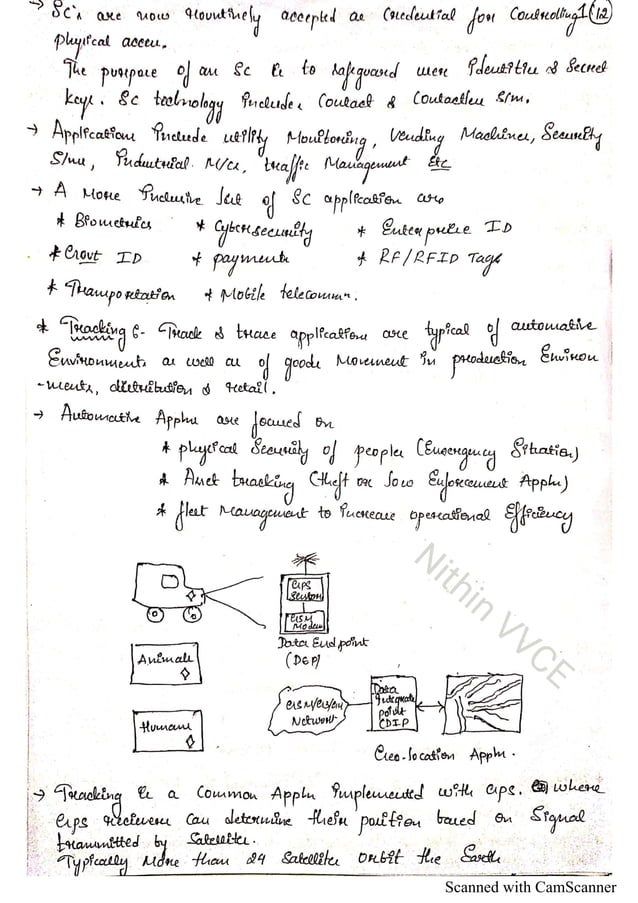 → SC's are now routinely accepted as Credential for Controlling 1 (12
physical access.
The purpose of an SC is to safeguard user Identities & Secret
keys. SC technology Includes Contact & Contactless s/m.
→ Applications Include utility Monitoring, Vending Machines, Security
S/ms, Industrial M/Cs, traffic Management Etc
→ A More Inclusive list of SC application are
* Biometrics * Cybersecurity * Enterprise ID
* Govt ID * payments * RF/RFID Tags
* Transportation * Mobile telecommn.
* Tracking :- Track & trace applications are typical of automative
Environments as well as of goods Movement in production Environ
-ments, distribution & retail.
→ Automative Applns are focused on
* physical Security of people (Emergency Sitration)
* Asset tracking (theft or law Enforcement Appln)
* fleet Management to Increase operational Efficiency
GPS
Sensors
GSM
Modem
Data End point
(DEP)
Animals
Humans
Network
Data
Integrate
point
(DIP
Geo-location Appln.
Nithin VVCE
→ Tracking is a Common Appln Implemented with GPS. where
GPS recievers Can determine their position based on Signal
transmitted by Satellites.
Typically More than 24 Satellites Orbit the Earth
Scanned with CamScanner